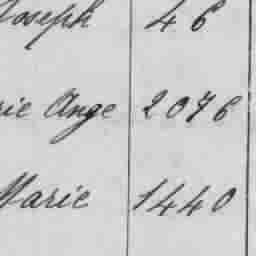 Joseph 46
rie Ange 2076
Marie 1440